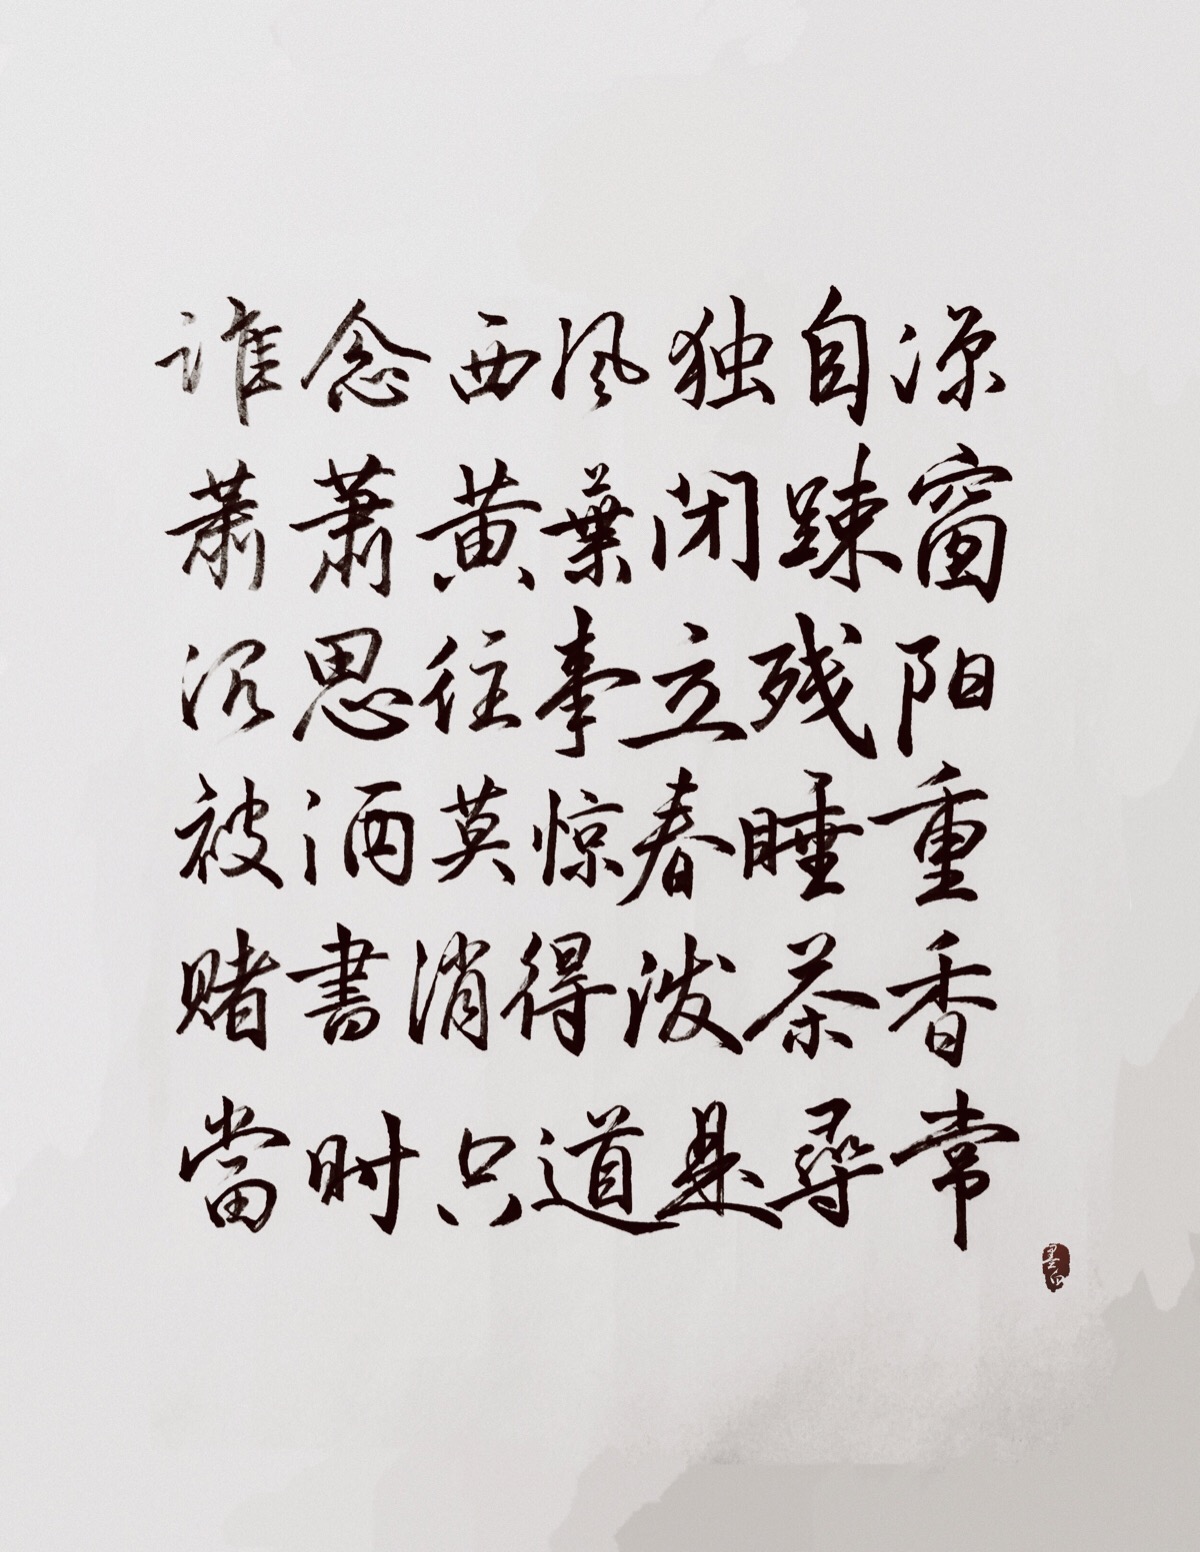 谁念西风独自凉
萧萧黄葉闭踈窗
沉思往事立残阳
被酒莫惊春睡重
赌書消得泼茶香
當时只道是尋常